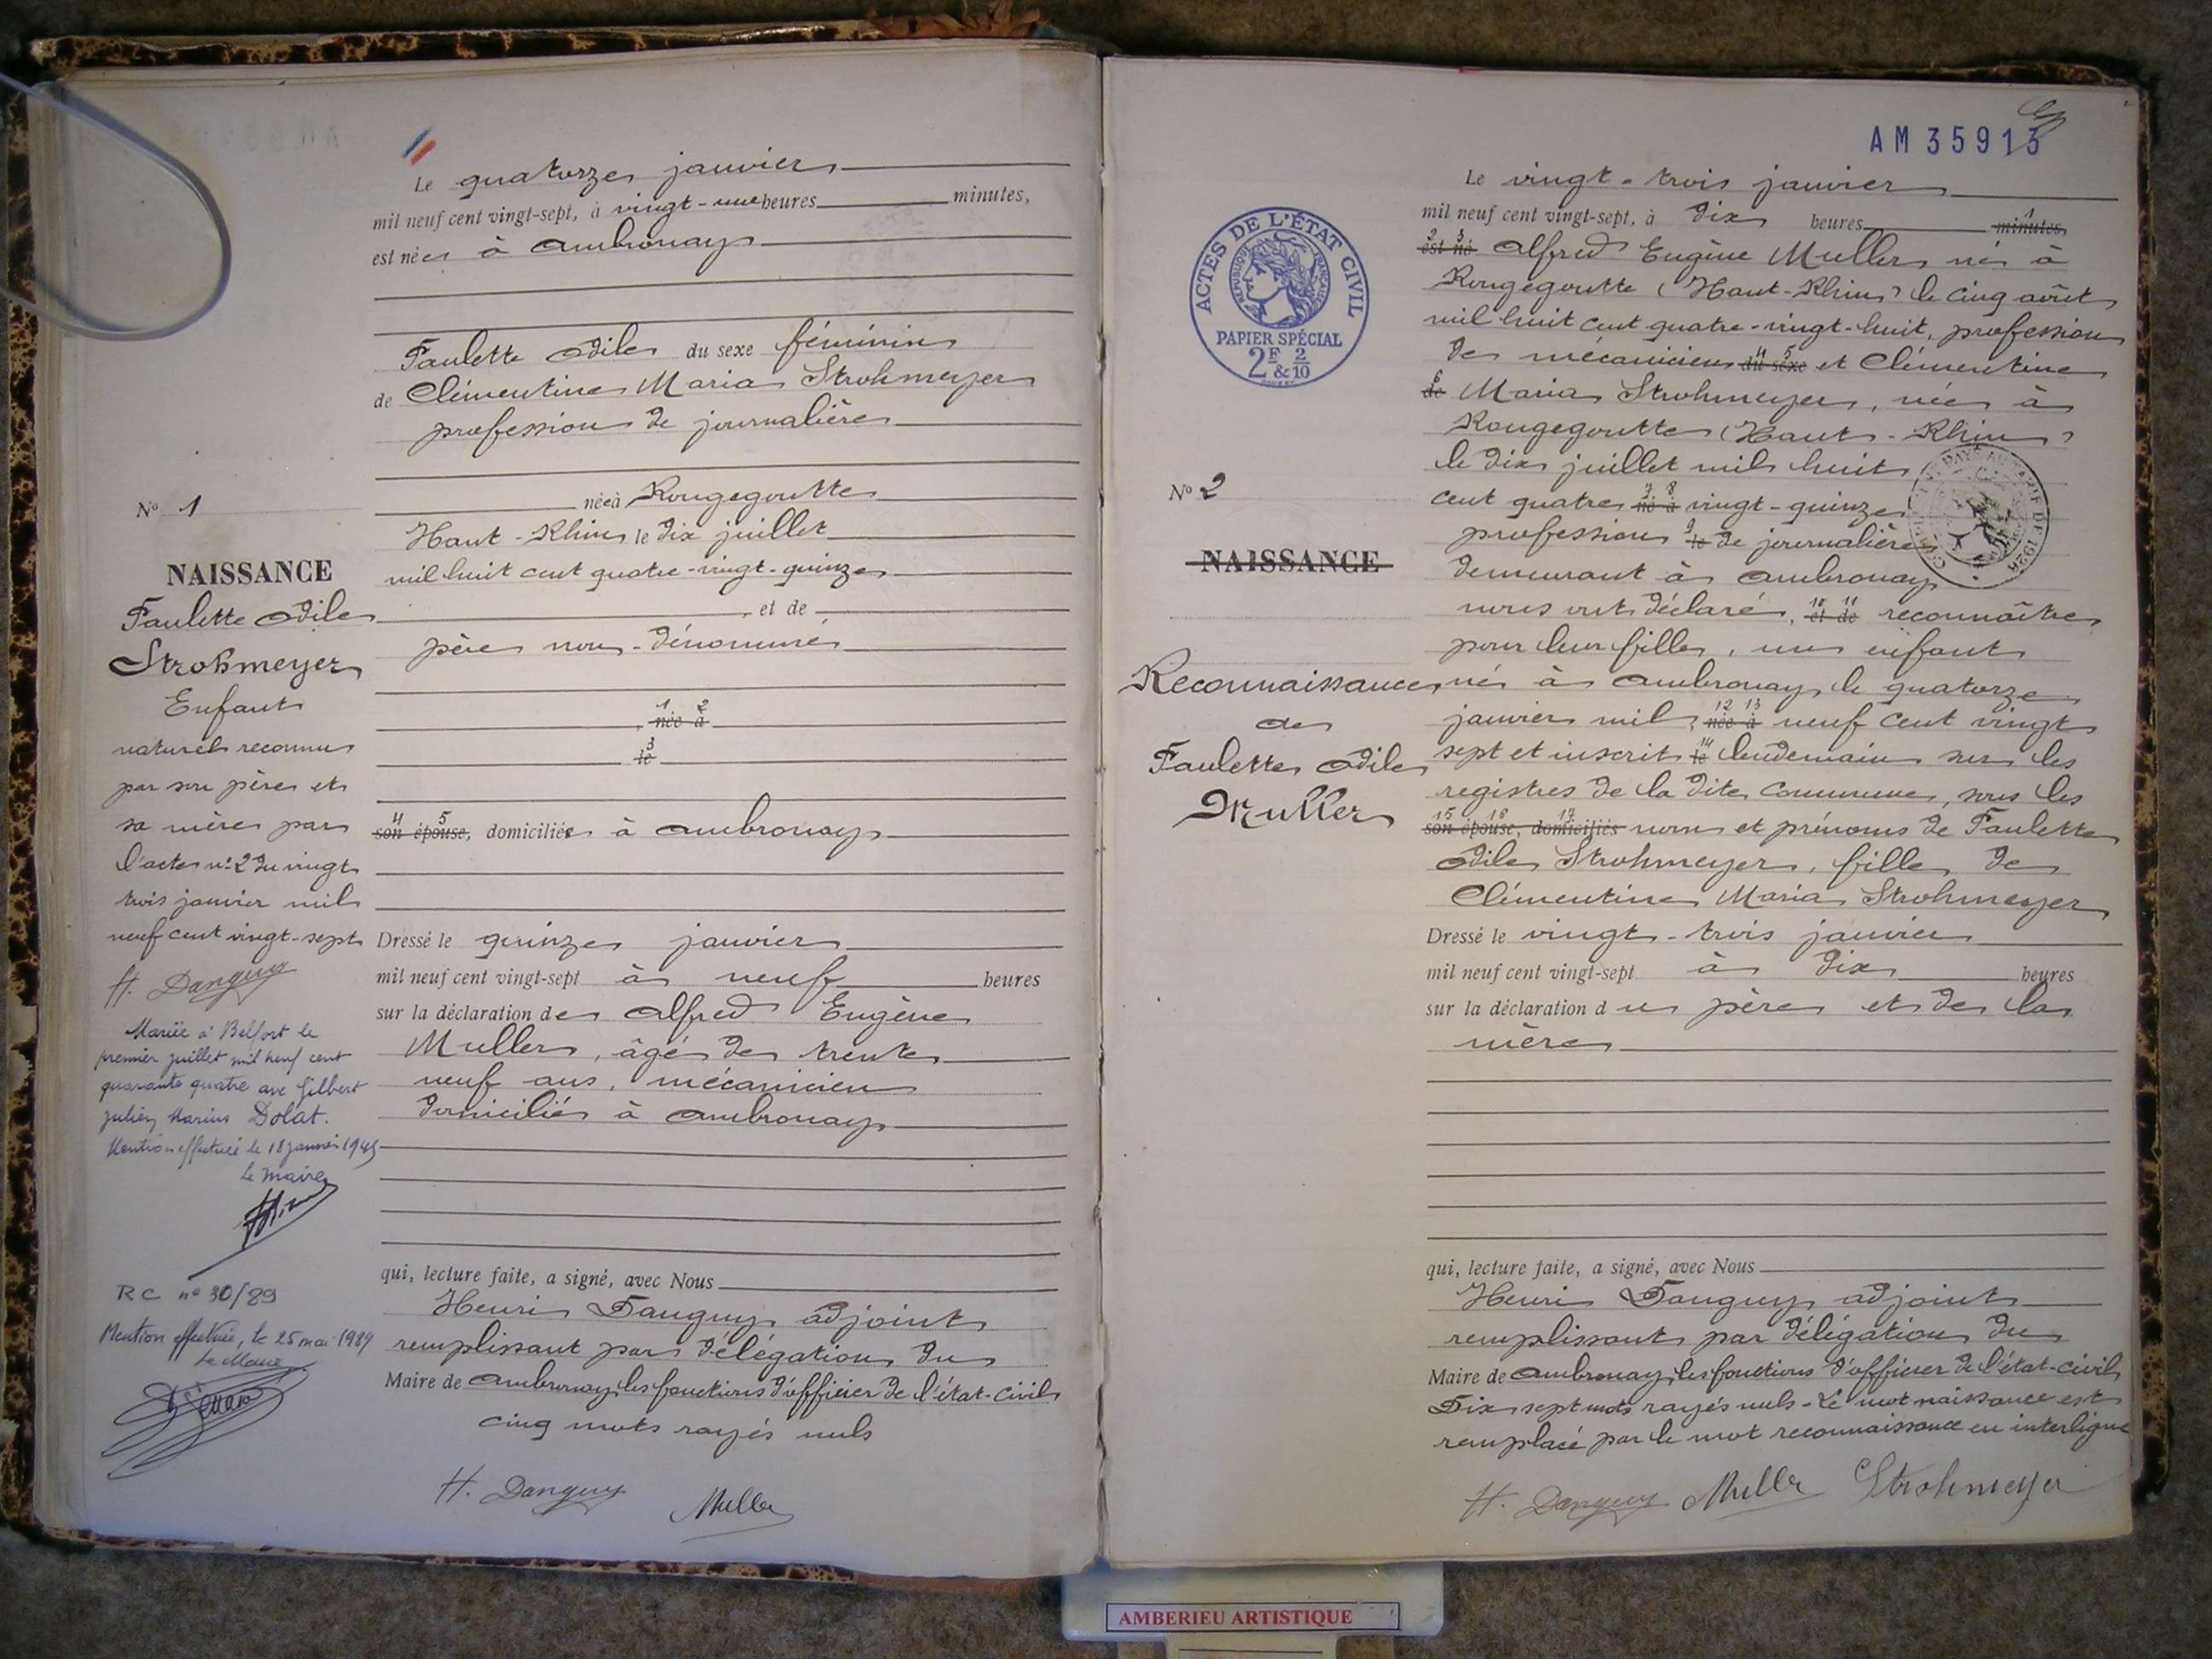 Le quatorze janvier
mil neuf cent vingt-sept, à vingt-une heures minutes,
est née à Ambronay
Paulette Odile du sexe féminin
de Clémentine Maria Strohmeyer
profession de journalière
née à Rougegoutte
Haut-Rhin le dix juillet
mil huit cent quatre-vingt-quinze
, et de
père non-dénommé
1 2
, née à
3
le
4 5
son épouse, domiciliée à Ambronay
Dressé le quinze janvier
mil neuf cent vingt-sept à neuf heures
sur la déclaration de Alfred Eugène
Muller, âgé de trente
neuf ans, mécanicien
domicilié à Ambronay
qui, lecture faite, a signé, avec Nous
Henri Danguy adjoint
remplissant par délégation du
Maire de Ambronay les fonctions d'officier de l'état-civil
cinq mots rayés nuls
H. Danguy Muller
No 1
NAISSANCE
Paulette Odile
Strohmeyer
Enfant
naturel reconnu
par son père et
sa mère par
l'acte n° 2 du vingt
trois janvier mil
neuf cent vingt-sept
H. Danguy
Mariée à Belfort le
premier juillet mil neuf cent
quarante quatre ave Gilbert
Julien Marius Dolat.
Mention effectuée le 18 janvier 1945
Le Maire
RC n° 30/89
Mention effectuée, le 25 mai 1989
Le Maire
AM 35913
Le vingt-trois janvier
1
mil neuf cent vingt-sept, à dix heures minutes,
2 3
est né Alfred Eugène Muller né à
Rougegoutte (Haut-Rhin) le cinq août
mil huit cent quatre-vingt-huit, profession
4 5
de mécanicien du sexe et Clémentine
6
de Maria Strohmeyer, née à
Rougegoutte (Haut-Rhin)
le dix juillet mil huit
7 8
cent quatre né à vingt-quinze
9
profession le de journalière
demeurant à Ambronay
10 11
nous ont déclaré, et de reconnaître
pour leur fille, un enfant
né à Ambronay le quatorze
12 13
janvier mil, née à neuf cent vingt
14
sept et inscrit le lendemain sur les
registres de la dite commune, sous les
15 16 17
son épouse, domiciliés nom et prénoms de Paulette
Odile Strohmeyer, fille de
Clémentine Maria Strohmeyer
Dressé le vingt-trois janvier
mil neuf cent vingt-sept à dix heures
sur la déclaration du père et de la
mère
qui, lecture faite, a signé, avec Nous
Henri Danguy adjoint
remplissant par délégation du
Maire de Ambronay, les fonctions d'officier de l'état-civil
Dix sept mots rayés nuls - Le mot naissance est
remplacé par le mot reconnaissance en interligne
H. Danguy Muller Strohmeyer
ACTES DE L'ÉTAT CIVIL
RÉPUBLIQUE FRANÇAISE
PAPIER SPÉCIAL
2F & 2/10
No 2
NAISSANCE
Reconnaissance
de
Paulette Odile
Muller
AMBERIEU ARTISTIQUE